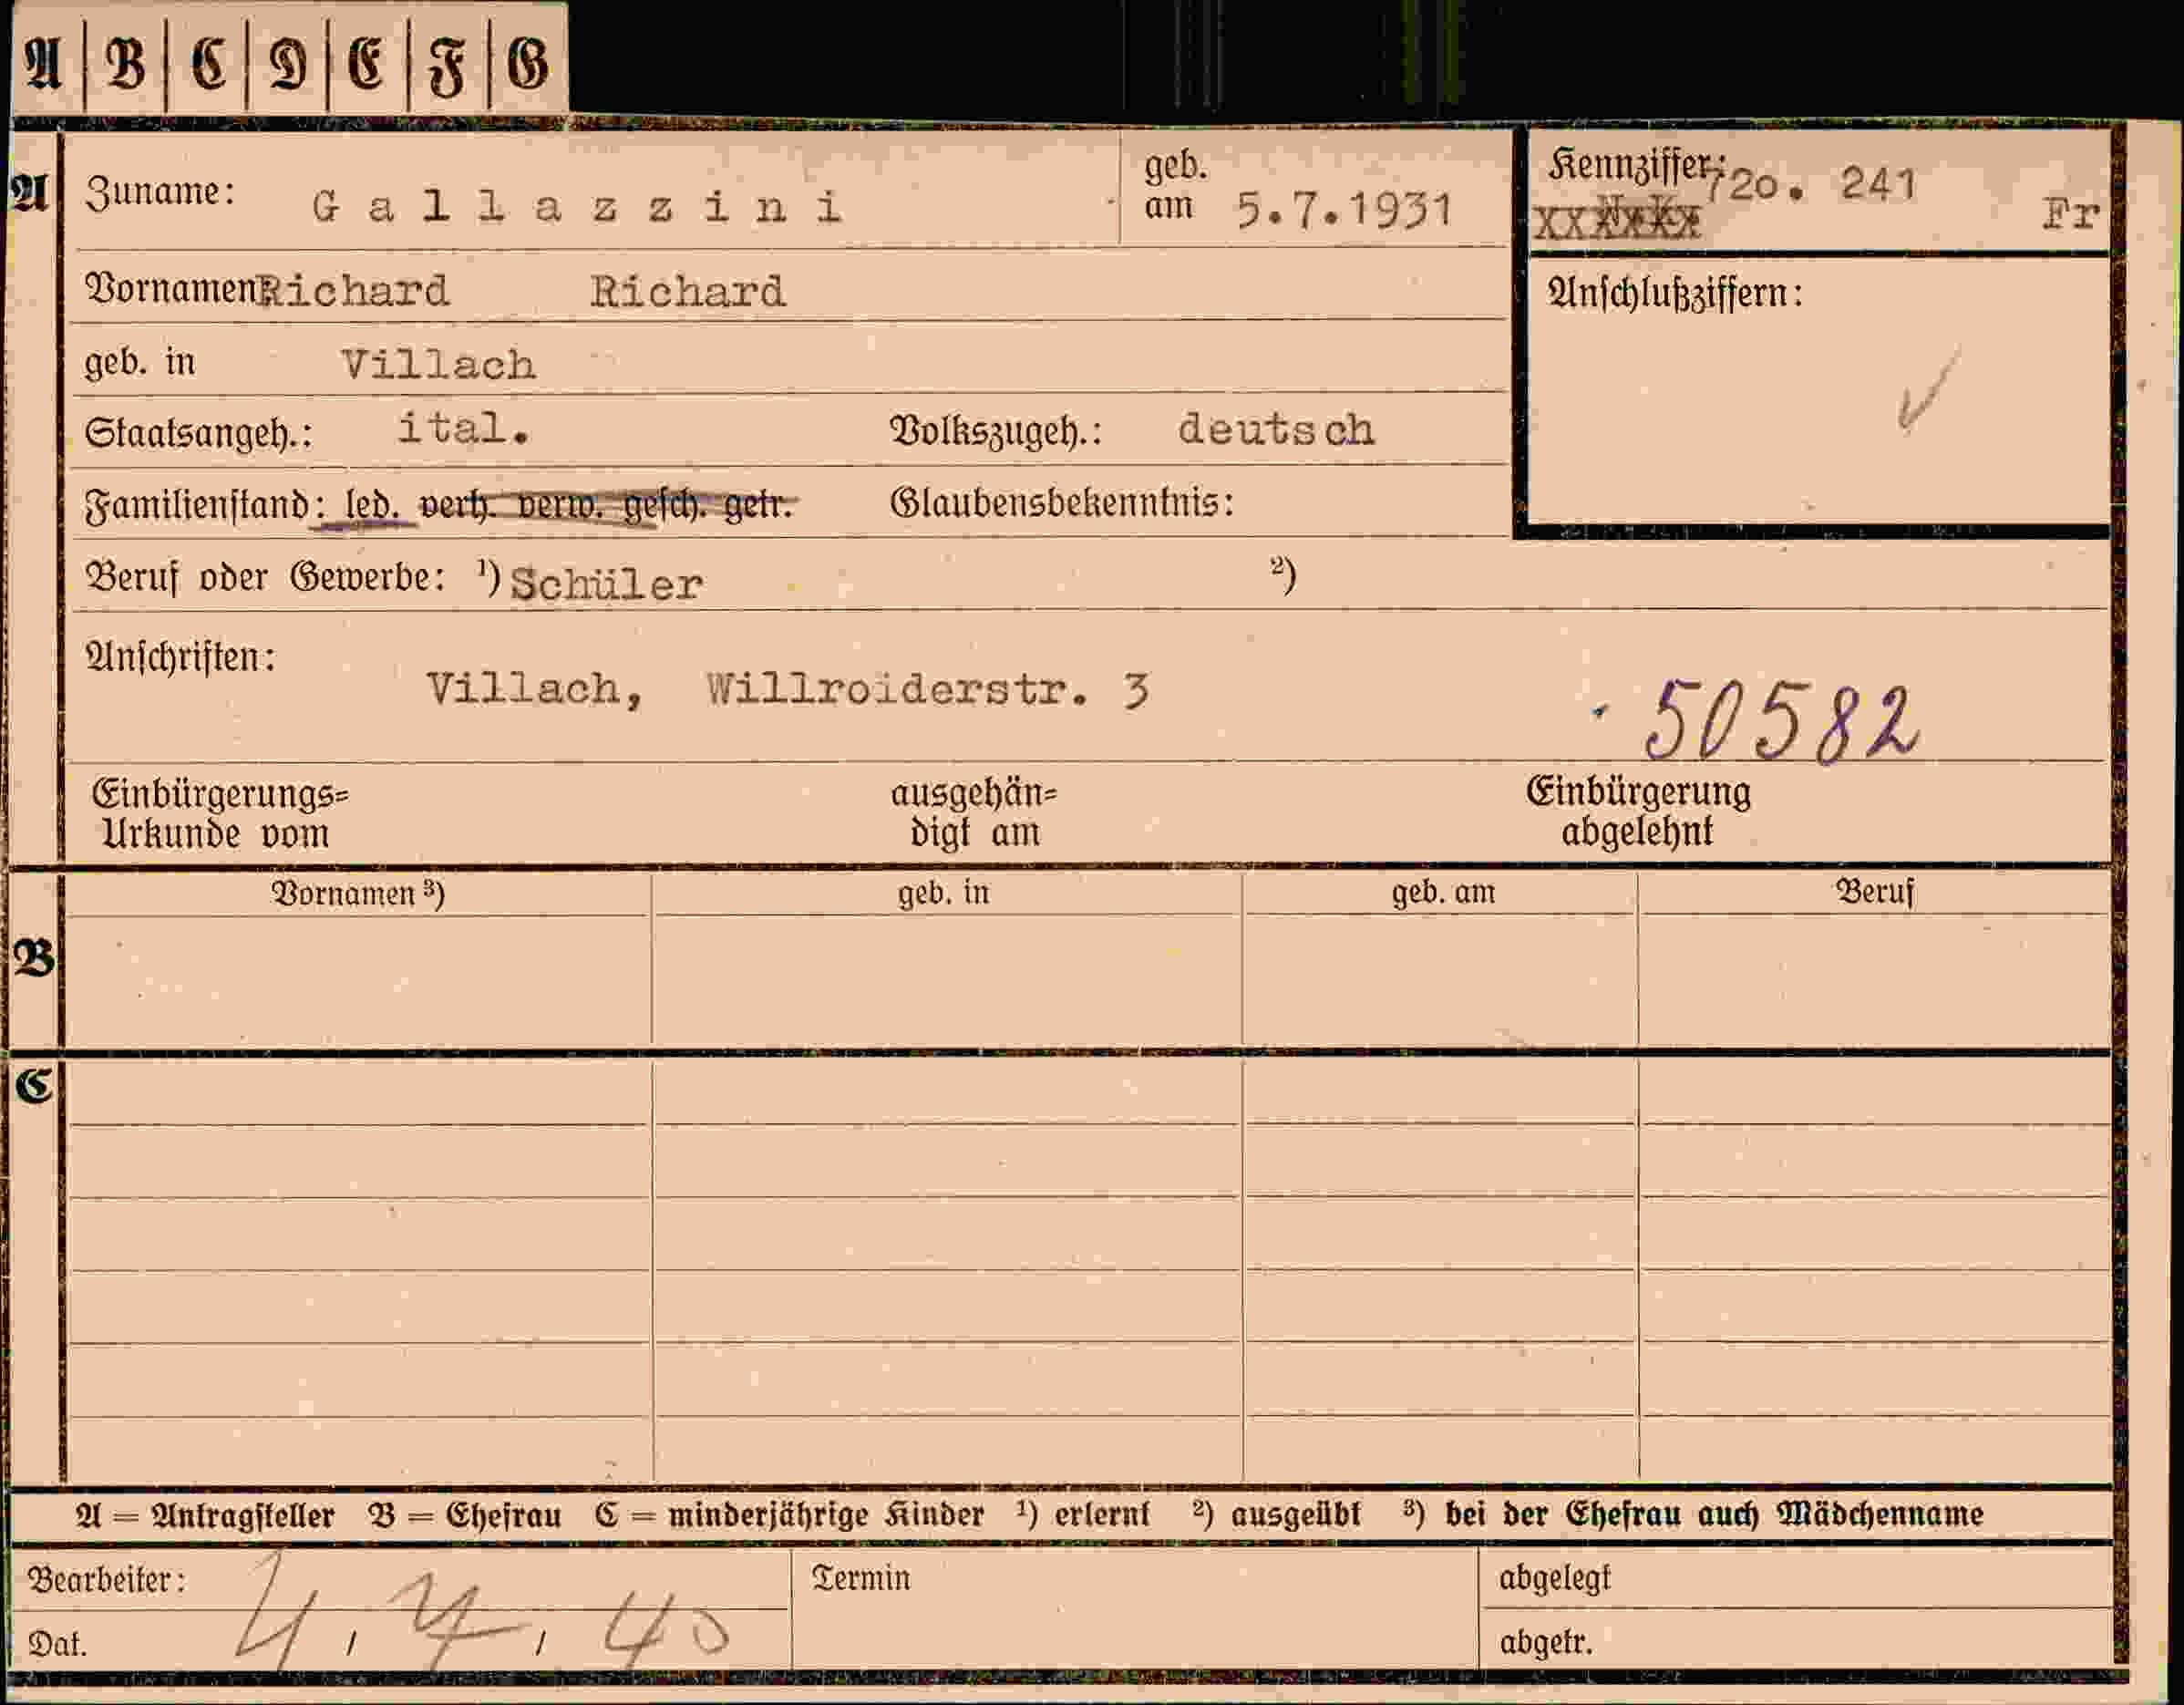 A | B | C | D | E | F | G
A Zuname: Gallazzini geb. am 5.7.1931 Kennziffer: 720. 241 Fr
Vornamen Richard Richard
Anschlußziffern:
geb. in Villach
Staatsangeh.: ital. Volkszugeh.: deutsch
Familienstand: led. verh. verw. gesch. getr. Glaubensbekenntnis:
Beruf oder Gewerbe: ¹) Schüler ²)
Anschriften:
Villach, Willroiderstr. 3
50582
Einbürgerungs= ausgehän= Einbürgerung
Urkunde vom digt am abgelehnt
Vornamen ³) geb. in geb. am Beruf
B
C
A = Antragsteller B = Ehefrau C = minderjährige Kinder ¹) erlernt ²) ausgeübt ³) bei der Ehefrau auch Mädchenname
Bearbeiter: Termin abgelegt
Dat. 4, 7, 40 abgetr.